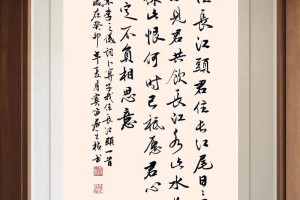 住長江頭君住長江尾日
見君共飲長江水此水
休此恨何時已祇願君心
定不負相思意
宋李之儀詞卜算子我住長江頭一首
歲在癸卯年夏月書